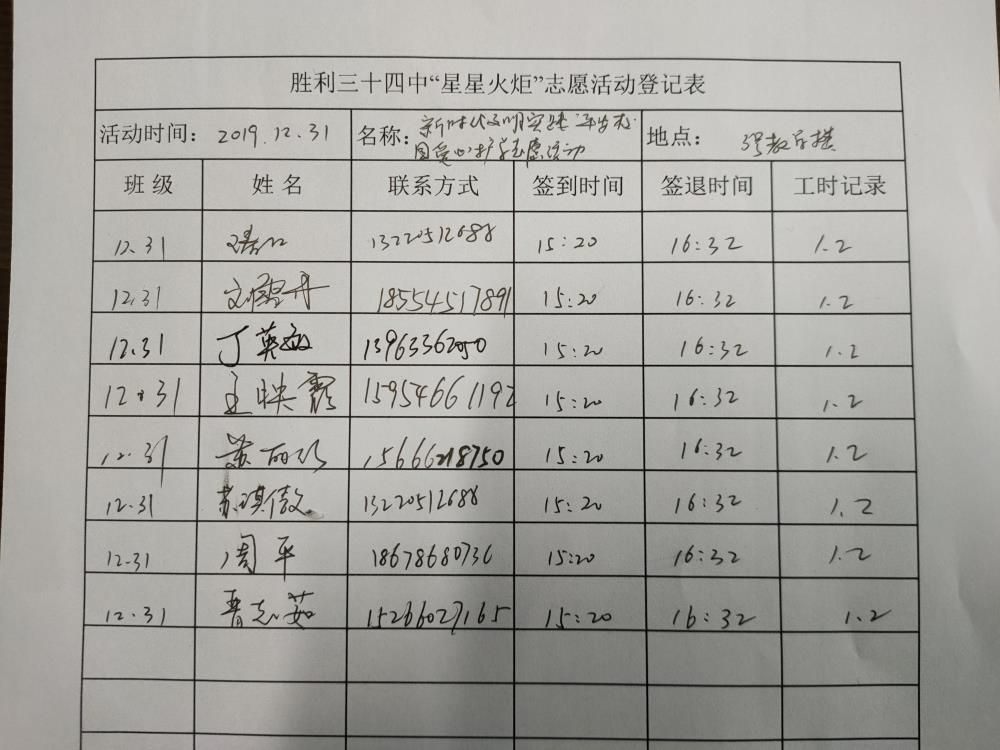 胜利三十四中“星星火炬”志愿活动登记表
活动时间: 2019.12.31 名称: 新时代文明实践 平安校园爱心护学志愿活动 地点: 教学楼
班级 姓名 联系方式 签到时间 签退时间 工时记录
12.31 13220512688 15:20 16:32 1.2
12.31 刘霞丹 18554517891 15:20 16:32 1.2
12.31 丁英敏 13963362050 15:20 16:32 1.2
12.31 王映霞 15954661192 15:20 16:32 1.2
12.31 苏丽 15666218750 15:20 16:32 1.2
12.31 苏琪傲 13220512688 15:20 16:32 1.2
12.31 周平 18678680736 15:20 16:32 1.2
12.31 晋志茹 15266027165 15:20 16:32 1.2